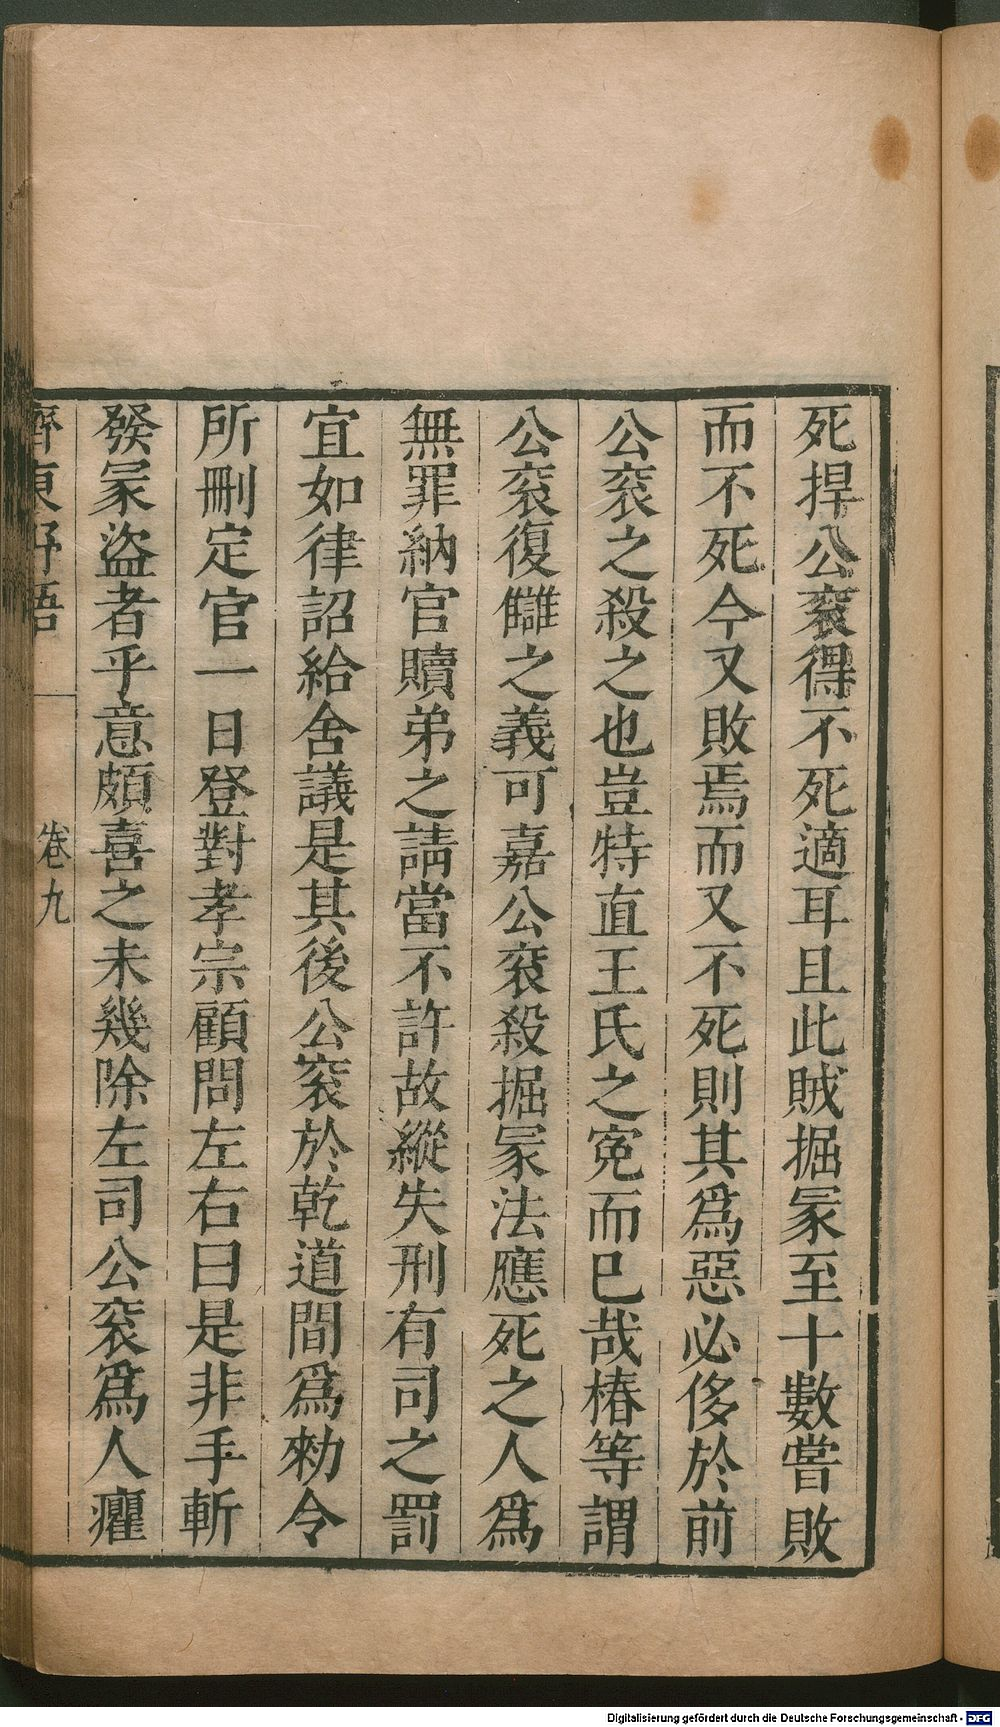 死捍公袞得不死適耳且此賊掘冢至十數嘗敗
而不死今又敗焉而又不死則其爲惡必侈於前
公袞之殺之也豈特直王氏之寃而已哉椿等謂
公袞復讎之義可嘉公袞殺掘冢法應死之人爲
無罪納官贖弟之請當不許故縱失刑有司之罰
宜如律詔給舍議是其後公袞於乾道間爲勑令
所刪定官一日登對孝宗顧問左右曰是非手斬
發冢盜者乎意頗喜之未幾除左司公袞爲人癯
齊東野語 卷九
Digitalisierung gefördert durch die Deutsche Forschungsgemeinschaft - DFG